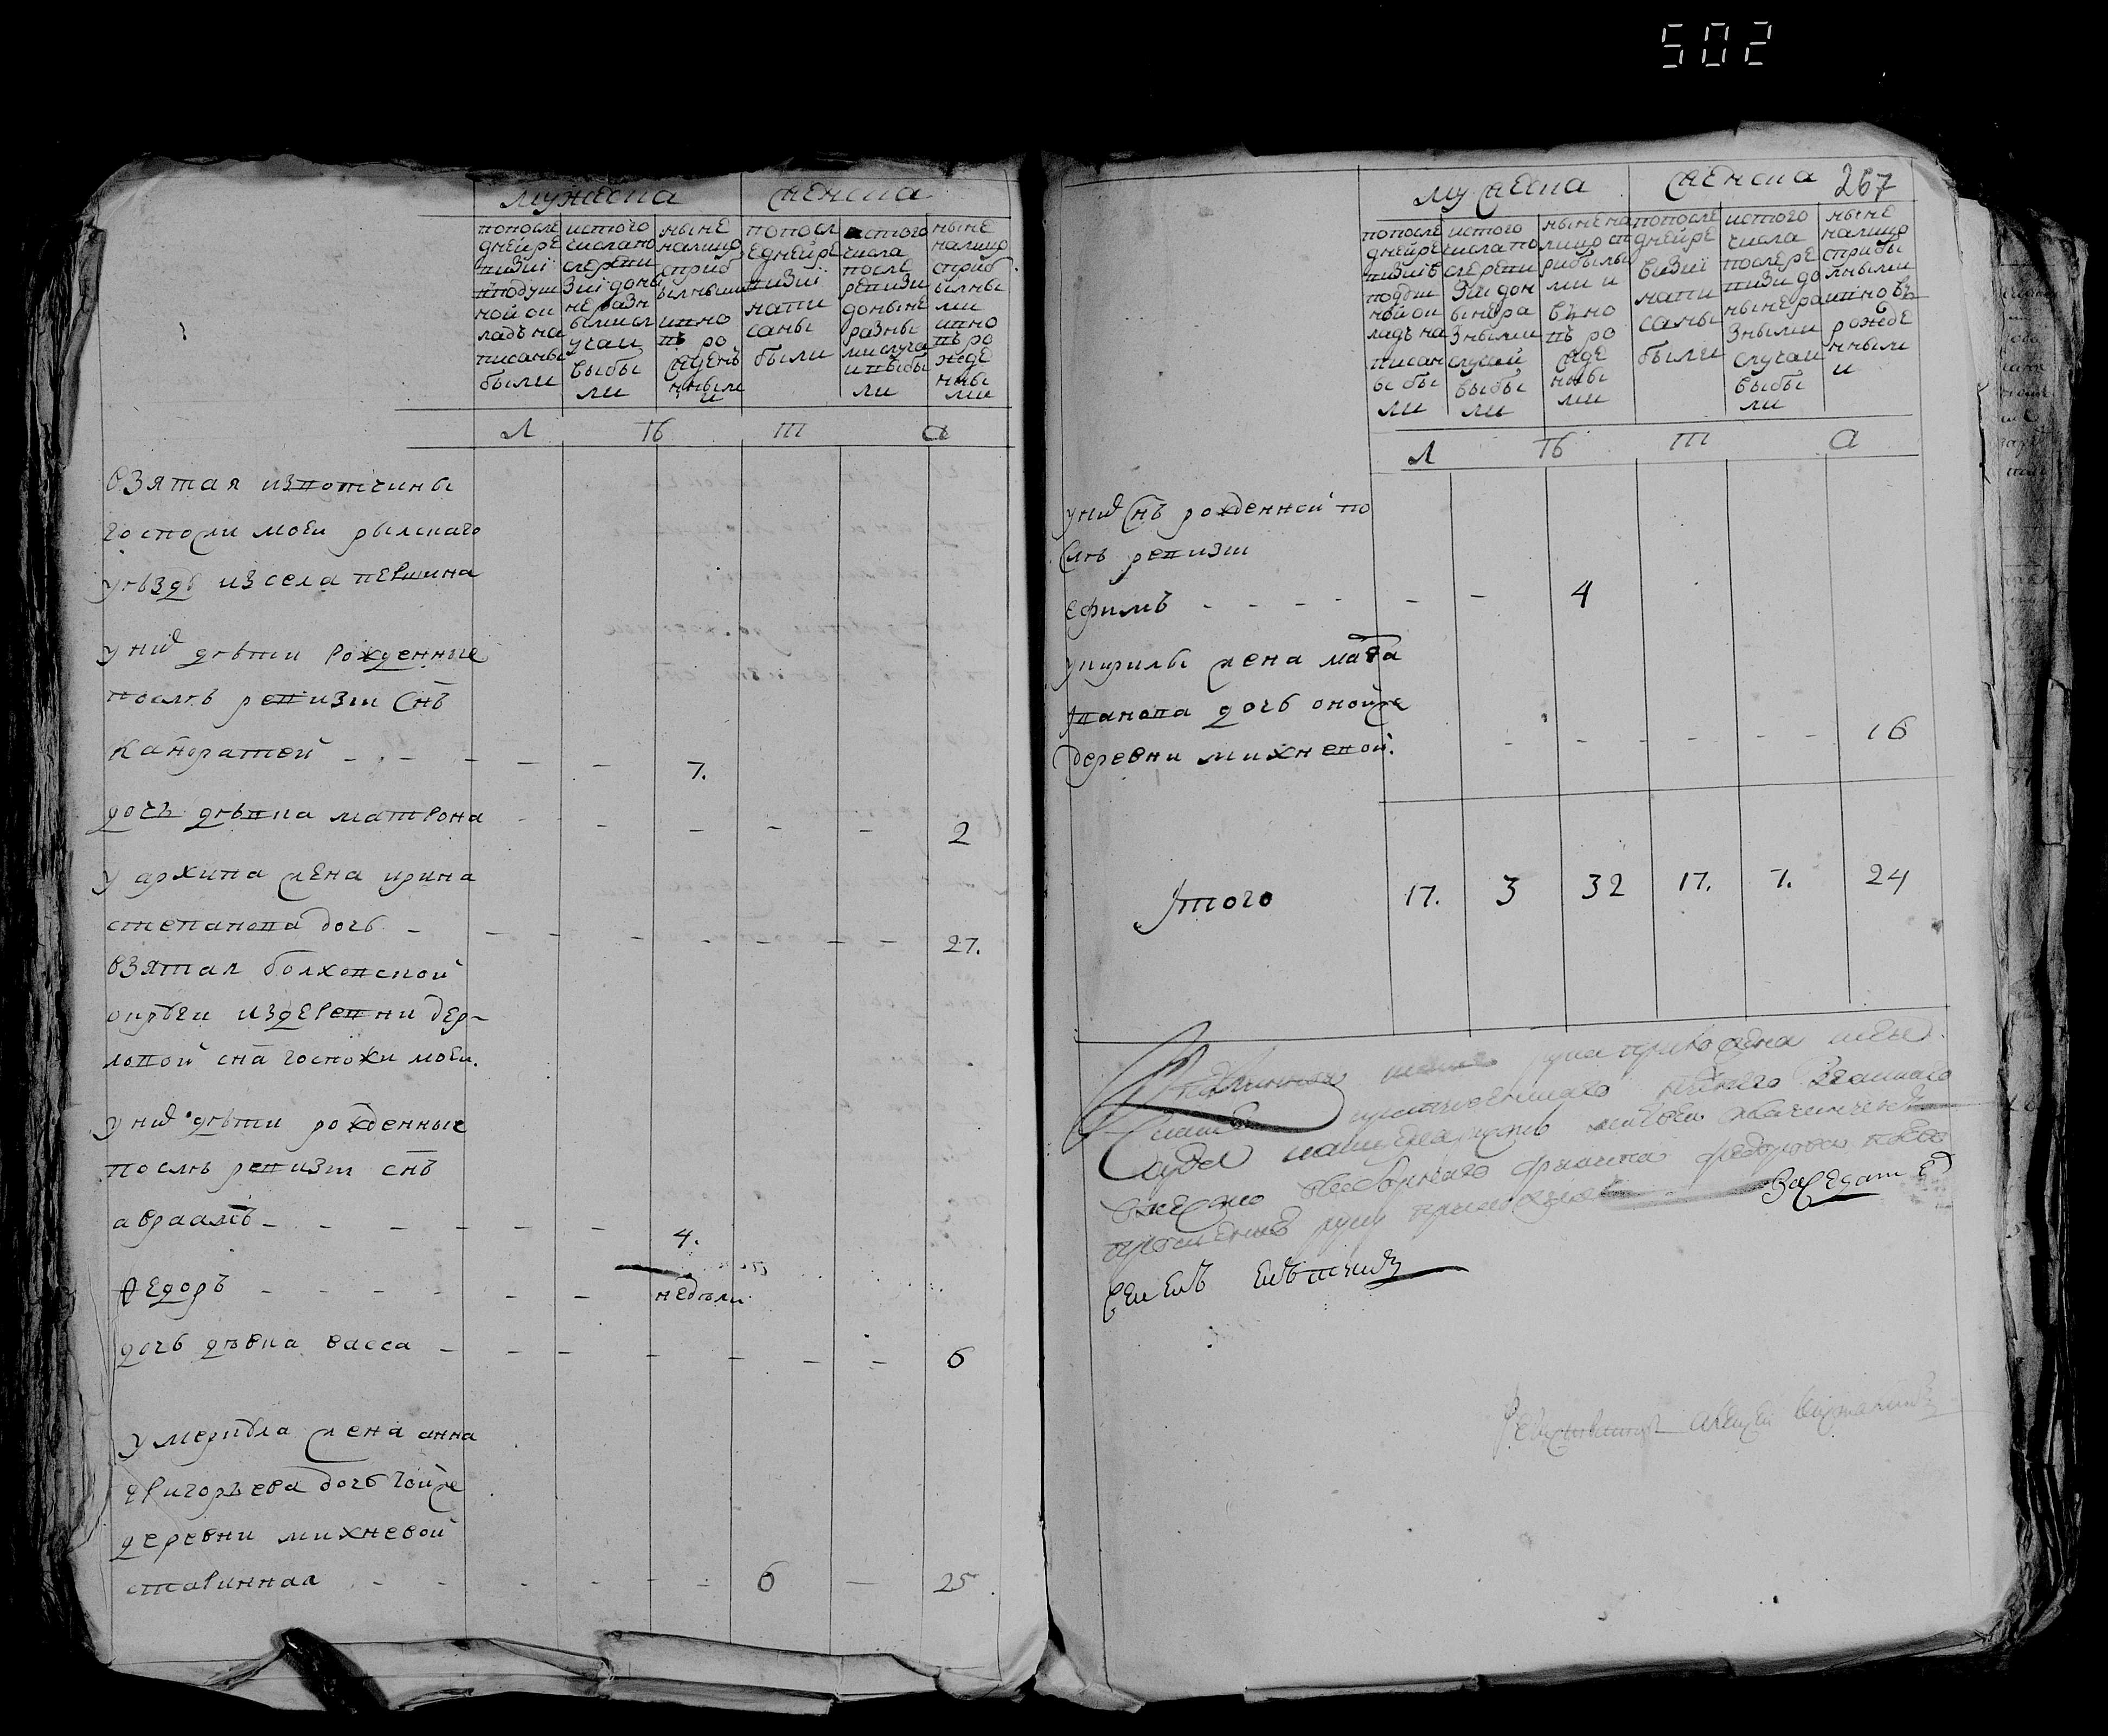 502
мужеска
женска
попосле
днейре
визiи
вподуш
ной ок
ладъ на
писаны
были
истого
числапо
слереви
зiи доны
не разн
ыми сл
учаи
выбы
ли
ныне
налицо
сприб
ылными
ивно
въ ро
жденъ
ными
попосл
еднейре
визiи
напи
саны
были
истого
числа
после
ревизи
доныне
разны
мислуча
и выбы
ли
ныне
налицо
сприб
ылны
ми
ивно
въ ро
жде
нны
ми
Л ѣ т а
взятая извотчины
госпожи моеи рылскаго
уѣзду изсела першина
униχ дѣти рожденные
послѣ ревизiи снъ
кандратей - - - - - 7.
дочь дѣвка матрона - - - - - 2
у архипа жена ирина
степанова дочь - - - - - - - - 27.
взятая болховской
округи издеревни дер-
ловой сна госпожи моеи.
униχ дѣти рожденные
послѣ ревизiи снъ
авраамъ - - - - - - 4.
ѳедоръ - - - - - - недѣли
дочь дѣвка васса - - - - - - - 6
у меркула жена анна
григорьева дочь тойже
деревни михневой
старинная - - - - - - 6 — 25
267
мужеска
женска
попосле
днейре
визiив
подуш
ной ок
ладъ на
писан
ы бы
ли
истого
числапо
слереви
зiи дон
ынера
зными
случай
выбы
ли
нынена
лицо сп
рибылы
ми и
вно
въ ро
жде
нны
ми
попосле
днейре
визiи
напи
саны
были
истого
числа
послере
визи до
нынера
зными
случаи
выбы
ли
ныне
налицо
стрибы
лными
ивновь
рожде
нными
Л ѣ т а
униχ снъ рожденной по
слѣ ревизiи
ефимъ - - - - - - 4
укирилы жена мавра
иванова дочь онойже
деревни михневой. - - - - - - 16
Итого 17. 3 32 17. 7. 24
рука приложена
руку приложилъ
Заседатель